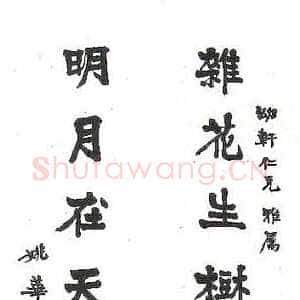 軒仁兄 雅属
雜花生樹
明月在天
姚華
Shufawang.CN